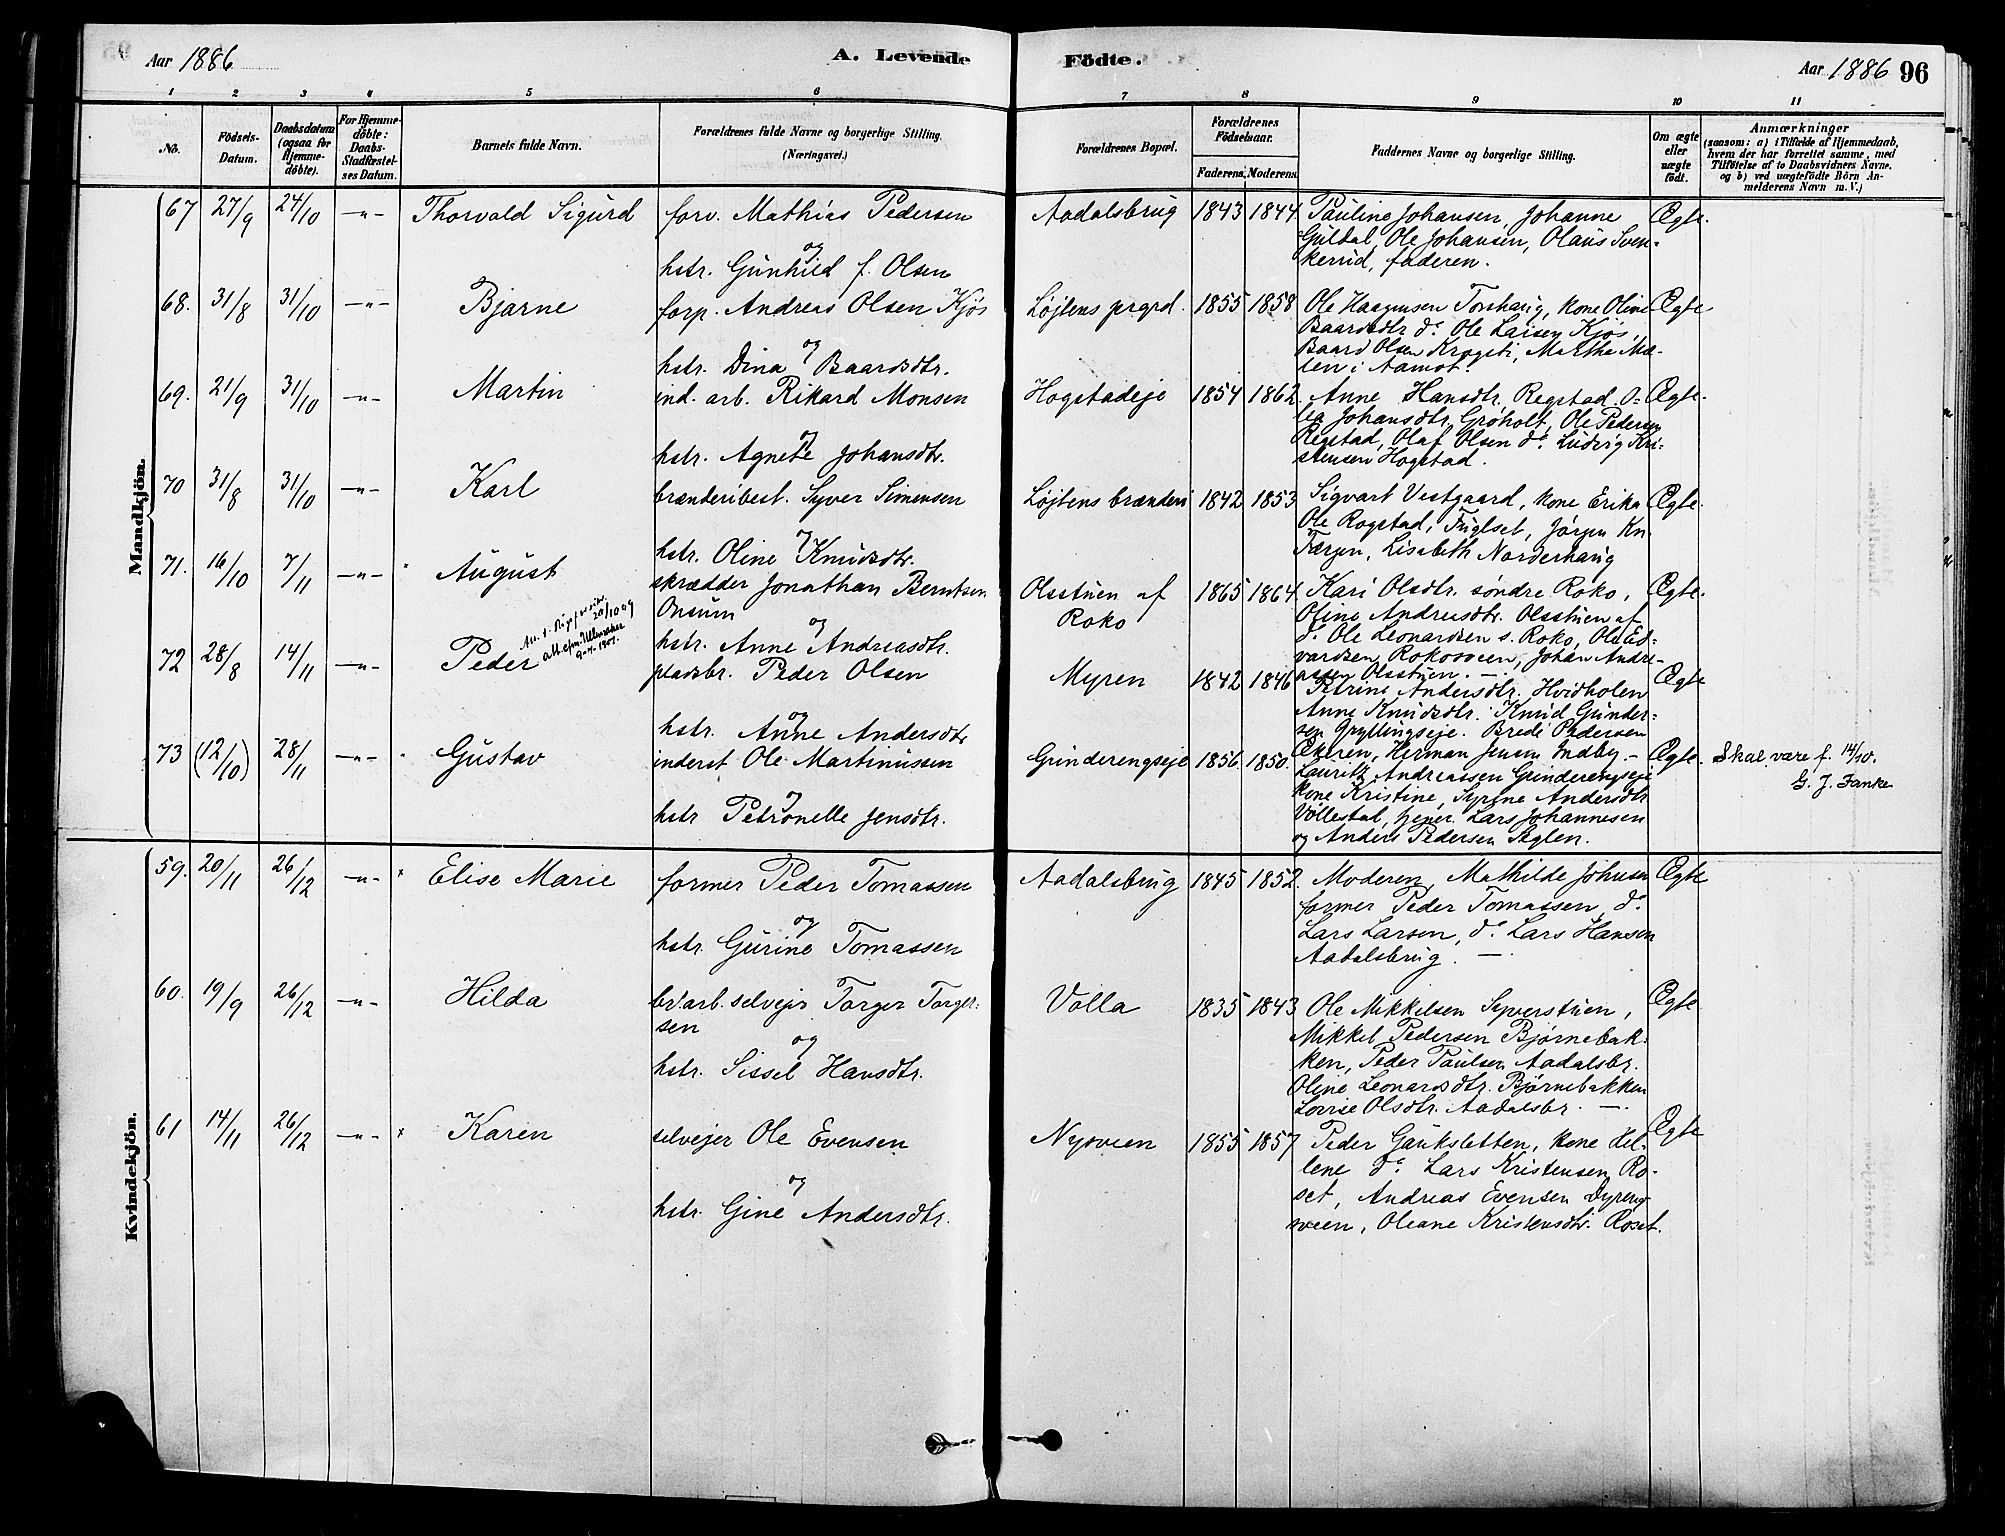 Aar 1886
A. Levende
Födte.
Aar 1886 96
1 2 3 4 5 6 7 8 9 10 11
No.
Födsels-
Datum.
Daabsdatum
(ogsaa for
Hjemme-
döbte).
For Hjemme-
döbte:
Daabs-
Stadfæstel-
ses Datum.
Barnets fulde Navn.
Forældrenes fulde Navne og borgerlige Stilling.
(Næringsvei.)
Forældrenes Bopæl.
Forældrenes
Födselsaar.
Faderens. Moderens.
Faddernes Navne og borgerlige Stilling.
Om ægte
eller
uægte
födt.
Anmærkninger
(saasom: a) i Tilfælde af Hjemmedaab,
hvem der har forrettet samme, med
Tilföielse af to Daabsvidners Navne,
og b) ved uægtefödte Börn An-
melderens Navn m. V.)
Mandkjön.
67 27/9 24/10 -"- Thorvald Sigurd
forv. Mathias Pedersen
og
hstr. Gunhild f. Olsen
Aadalsbrug 1843 1844
Pauline Johansen, Johanne
Guldal, Ole Johansen, Olaus Sven-
kerud, faderen.
Ægte.
68. 31/8 31/10 -"- Bjarne
forp. Andreas Olsen Kjøs
og
hstr. Dina Baardsdtr.
Løjtens prgrd. 1855 1858
Ole Haagensen Torshaug, kone Oline
Baardsdtr do. Ole Larsen Kjøs,
Baard Olsen Krogsti, Martha Mæ-
len i Aamot.
Ægte
69. 21/9 31/10 -"- Martin
ind. arb. Rikard Monsen
og
hstr. Agnete Johansdtr.
Hogstadeje 1854 1862
Anne Hansdtr. Regstad, O-
lea Johansdtr. Grøholt, Ole Pedersen
Regstad, Olaf Olsen do. Ludvig Kri-
stensen Hogstad.
Ægte.
70 31/8 31/10 -"- Karl
brænderibest. Syver Simensen
og
hstr. Oline Knudsdtr.
Løjtens brænderi 1842 1853
Sigvart Vestgaard, kone Erika
Ole Rogstad, Fuglset, Jørgen Kn.
Færgen, Lisabeth Norderhaug
Ægte.
71. 16/10 7/11 -"- August
skrædder Jonathan Berntsen
Onsum
og
hstr. Anne Andreasdtr.
Olsstuen af
Roko
1865 1864
Kari Olsdtr. søndre Roko,
Oline Andreasdtr. Olsstuen af
do. Ole Leonardsen s. Roko, Ole Ed-
vardsen Rokosveen, Johan Andre-
assen Olsstuen. —
Ægte.
72 28/8 14/11 -"- Peder
20/10 09
9-4-1907.
pladsbr. Peder Olsen
og
hstr. Anne Andersdtr
Myren 1842 1846
Petrine Andersdtr. Hvidholen
Anne Knudsdtr. Knud Gunder-
sen Gryllingseje. Brede Pedersen
Ekeren, Herman Jensen Indby. —
Ægte
73 (12/10) 28/11 -"- Gustav
inderst Ole Martinussen
og
hstr Petronelle Jensdtr.
Grinderengseje 1856. 1850.
Lauritz Andreassen Grinderengseje
kone Kristine, Syrine Andersdtr
Vollestad, Gener. Lars Johannesen
og Anders Pedersen Seglen.
Ægte.
Skal være f. 14/10.
G. J. Fanke
Kvindekjön.
59. 20/11 26/12 -"- x Elise Marie
former Peder Tomassen
og
hstr. Gurine Tomassen
Aadalsbrug 1845 1852.
Moderen, Mathilde Johnsen
former Peder Tomassen, do.
Lars Larsen, do. Lars Hansen
Aadalsbrug. —
Ægte
60. 19/9 26/12 -"- Hilda
br.arb. selvejer Torger Torger-
sen
og
hstr. Sissel Hansdtr.
Volla 1835 1843
Ole Mikkelsen Syverstuen,
Mikkel Pedersen Bjørnebak-
ken, Peder Paulsen Aadalsbr.
Oline Leonardsdtr. Bjørnebakken
Lovise Olsdtr. Aadalsbr. —.
Ægte
61 14/11 26/12 -"- x Karen
selvejer Ole Evensen
og
hstr. Gine Andersdtr.
Nysveen 1855 1857
Peder Gaukstetten, kone Hel-
lene do. Lars Kristensen Ro-
set, Andreas Evensen Dyreng
sveen, Oleane Kristensdtr. Roset.
Ægte